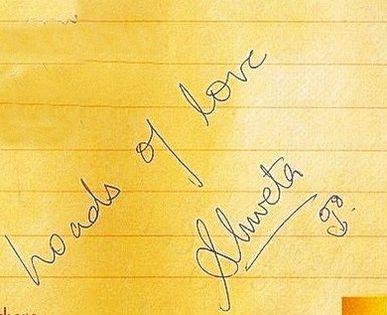 Loads of love
Shweta